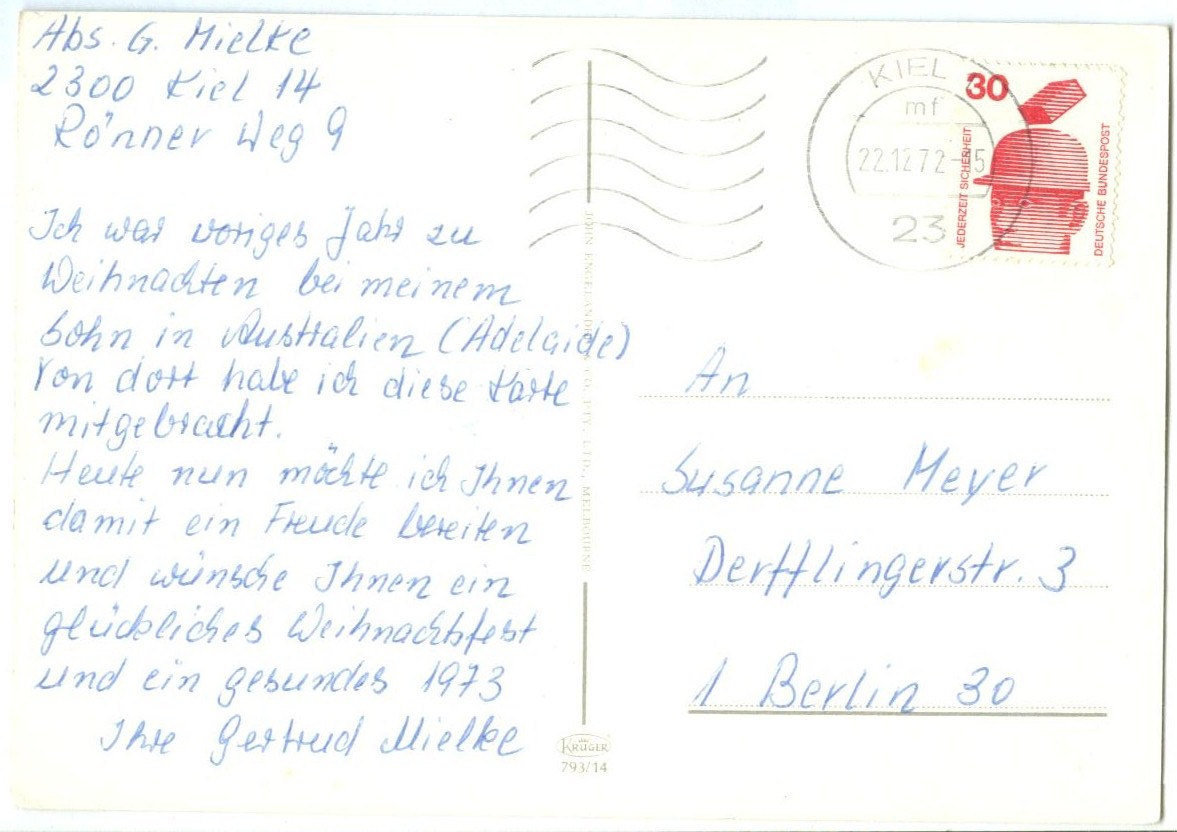 Abs. G. Mielke
2300 Kiel 14
Rönner Weg 9
Ich war voriges Jahr zu
Weihnachten bei meinem
Sohn in Australien (Adelaide)
Von dort habe ich diese Karte
mitgebracht.
Heute nun möchte ich Ihnen
damit ein Freude bereiten
und wünsche Ihnen ein
glückliches Weihnachtsfest
und ein gesundes 1973
Ihre Gertrud Mielke
JOHN ENGELANDER & CO. PTY. LTD., MELBOURNE
KRÜGER
793/14
KIEL
mf
22.12.72-15
23
30
JEDERZEIT SICHERHEIT
DEUTSCHE BUNDESPOST
An
Susanne Meyer
Derfflingerstr. 3
1 Berlin 30